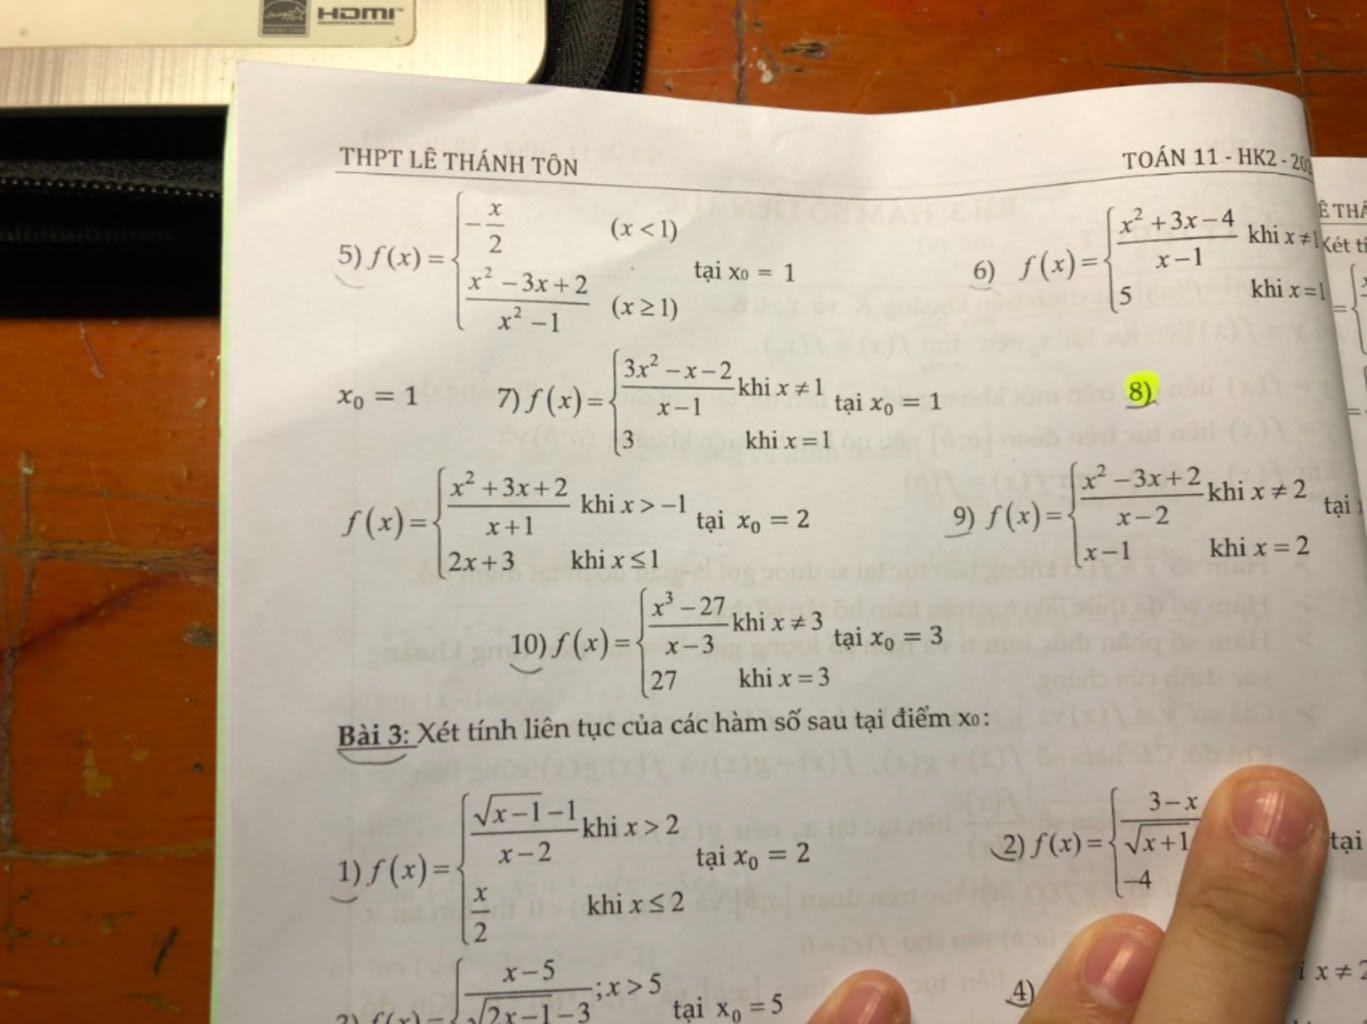 HDMI
THPT LÊ THÁNH TÔN
TOÁN 11 - HK2 - 202
5) f(x) = { -x/2 (x < 1)
(x² - 3x + 2)/(x² - 1) (x ≥ 1) tại x₀ = 1
6) f(x) = { (x² + 3x - 4)/(x - 1) khi x ≠ 1
5 khi x = 1
x₀ = 1
7) f(x) = { (3x² - x - 2)/(x - 1) khi x ≠ 1
3 khi x = 1 tại x₀ = 1
8)
f(x) = { (x² + 3x + 2)/(x + 1) khi x > -1
2x + 3 khi x ≤ 1 tại x₀ = 2
9) f(x) = { (x² - 3x + 2)/(x - 2) khi x ≠ 2
x - 1 khi x = 2 tại
10) f(x) = { (x³ - 27)/(x - 3) khi x ≠ 3
27 khi x = 3 tại x₀ = 3
Bài 3: Xét tính liên tục của các hàm số sau tại điểm x₀:
1) f(x) = { (√(x - 1) - 1)/(x - 2) khi x > 2
x/2 khi x ≤ 2 tại x₀ = 2
2) f(x) = { 3 - x
√(x + 1)
-4 tại
(x - 5)/(√(2x - 1) - 3) ; x > 5 tại x₀ = 5
4)
x ≠ 2